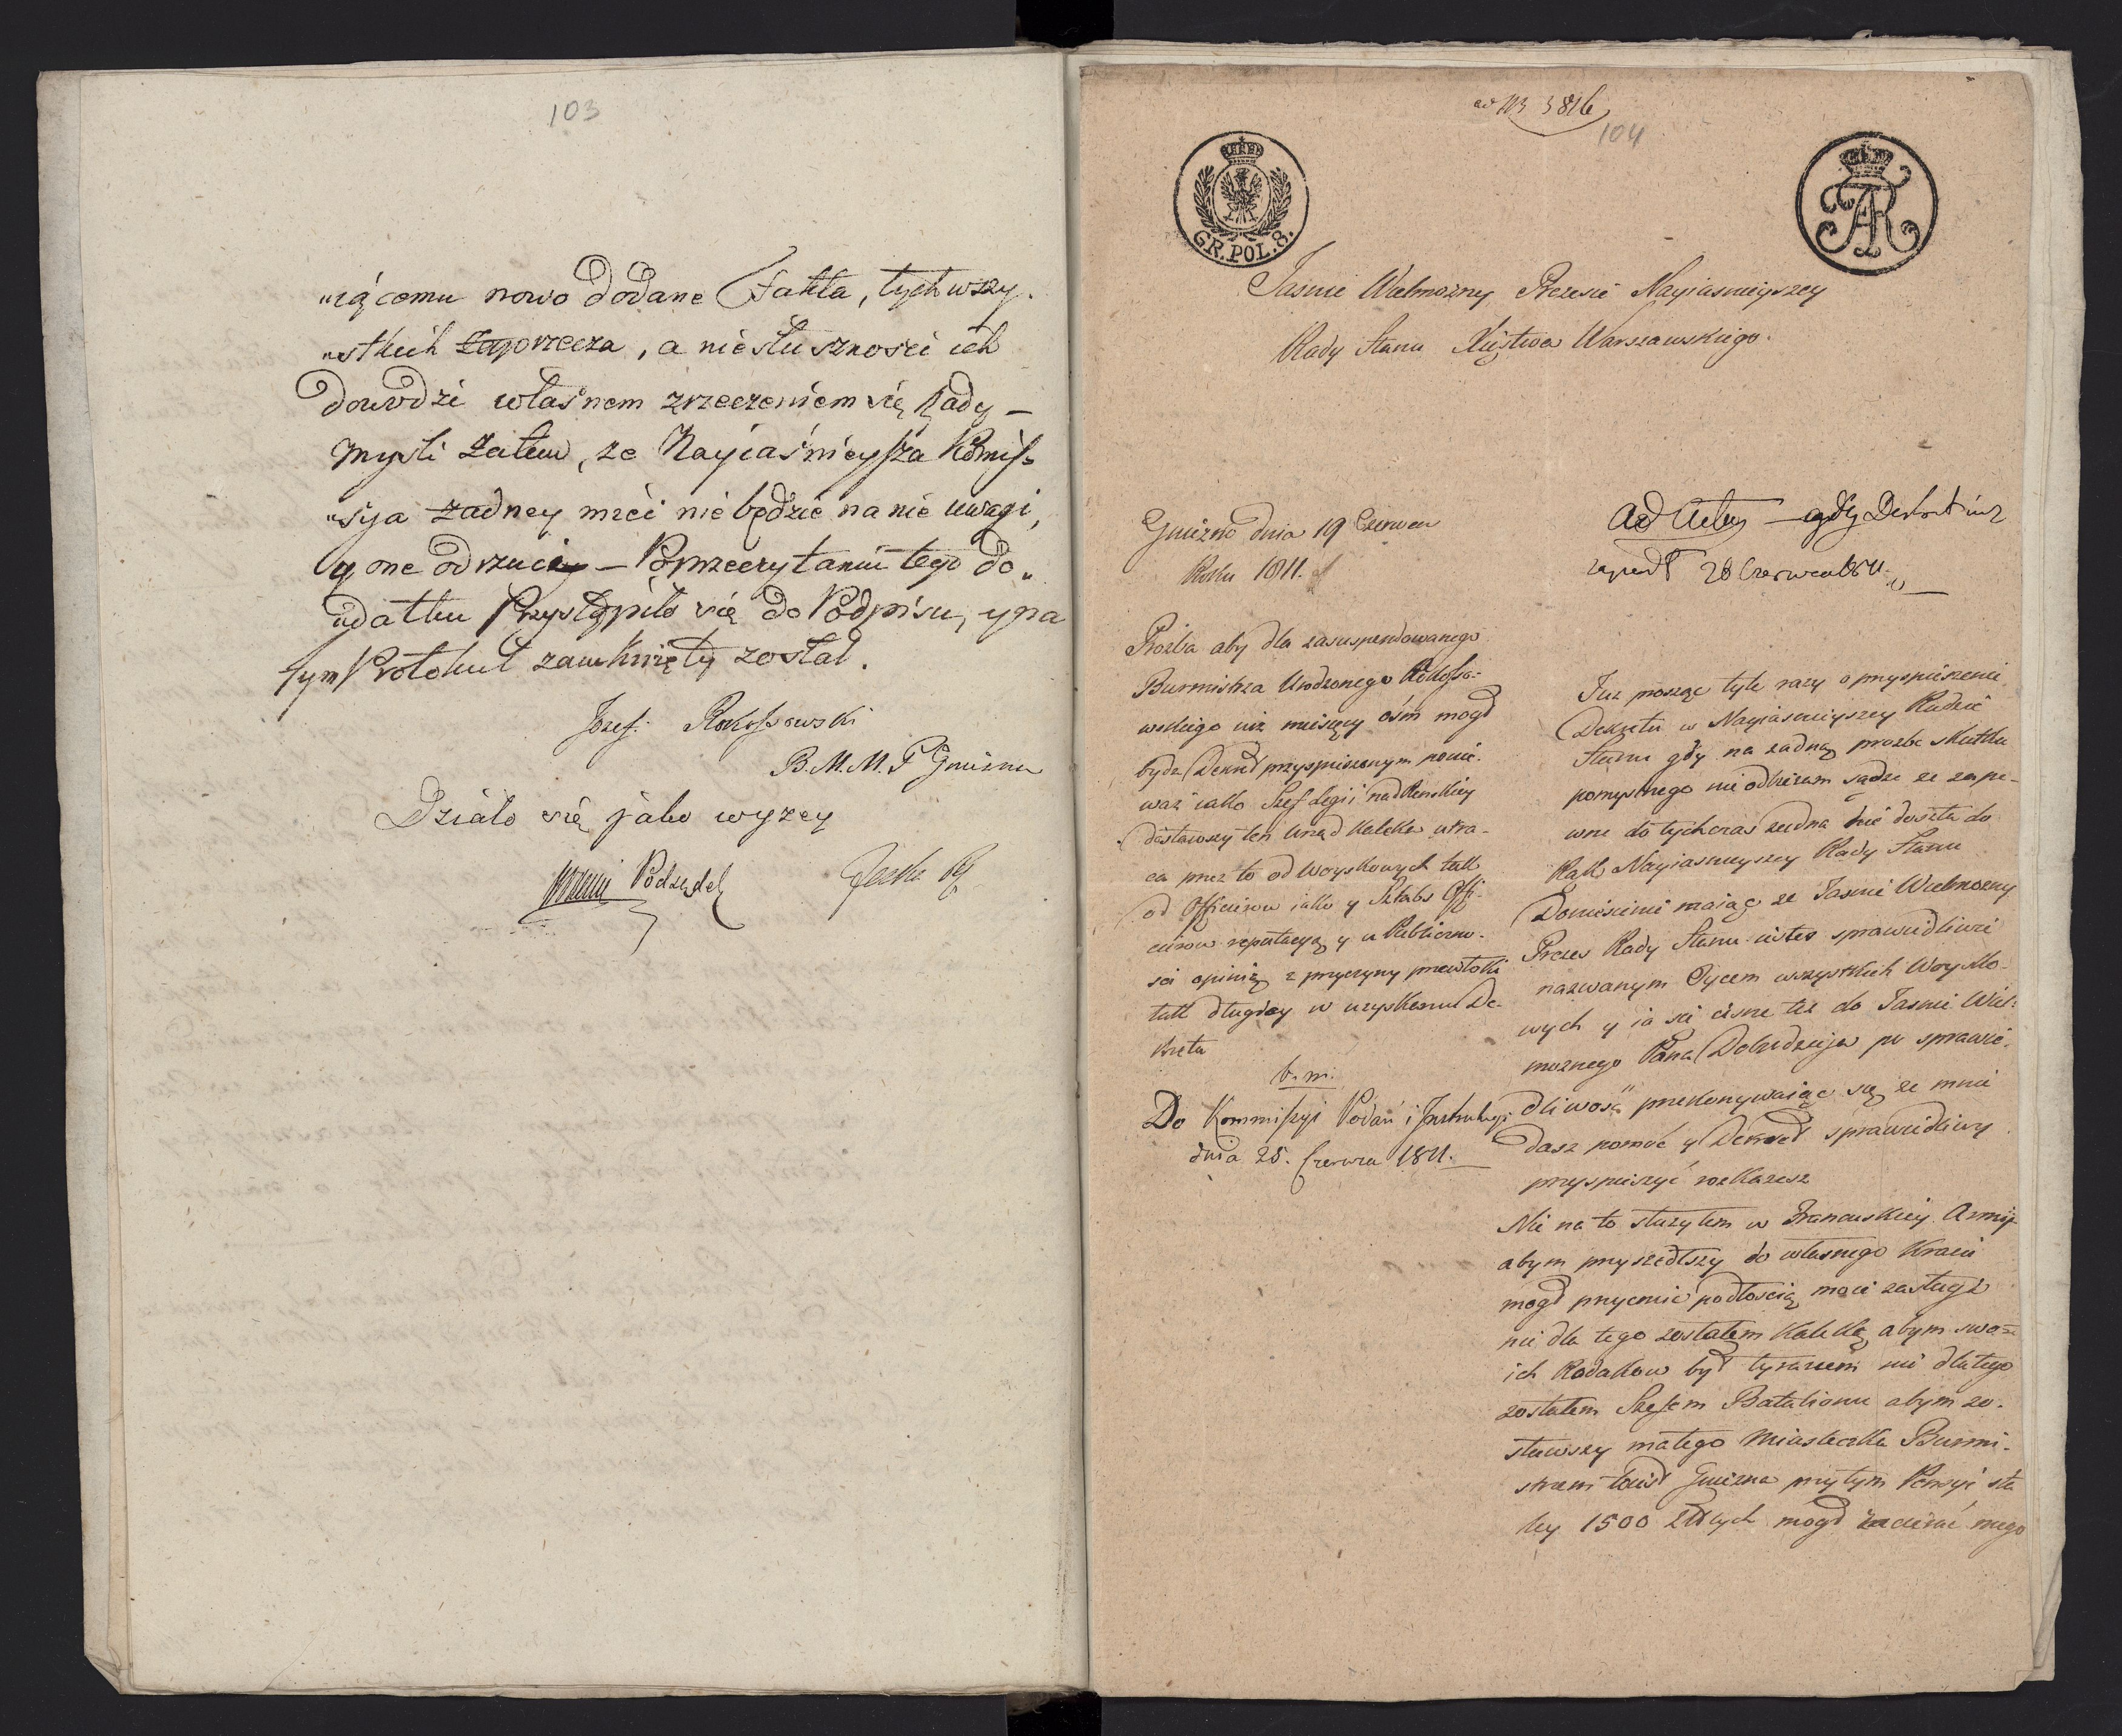 103
„iącemu nowo dodane Fakta, tych wszy-
„stkich zaprzecza, a niesłuszności ich
dowodzi własnem zrzeczeniem się Rady —
myśli zatem, że Nayiaśnieysza Kōmis-
„sya żadney mieć nie będzie na nie uwagi,
y one odrzuci — Po przeczytaniu tego do„
„datku Przystąpiło się do Podpisu, y na
tym Protokuł zamknięty został.
Jozef Rokossowski
B. M. M. P Gniezna
Działo się jako wyzey
Podsędek
ad N3 3816
104
GR. POL. 8.
Jasnie Wielmozny Prezesie Nayiasnieyszey
Rady Stanu Xięstwa Warszawskiego.
Gniezno dnia 19 Czerwca
Roku 1811.
ad Acta — gdy Dekret iuz
zapadł 28 Czerwca 1811
Prozba aby dla zasuspendowanego
Burmistrza Urodzonego Rokosso-
wskiego iuż miesięcy ośm mogł
bydz Dekret przyspieszonym ponie-
waż iako Szef Legii nadRenskiey
dostawszy ten Urząd kaleka utra-
ca przez to od Woyskowych tak
od Officirow iako y Sztabs Offi-
cirow reputacyą y u Publiczno-
sci opinią z przyczyny przewłoki
tak długiey w uzyskaniu De-
kretu
b. m.
Do Kommissyi Podań i Instrukcyi
dnia 25. Czerwca 1811.
Juz prosząc tyle razy o przyspieszenie
Dekretu w Nayiasnieyszey Radzie
Stanu gdy na zadną prozbe skutku
pomyslnego nie odbieram sądze ze zape-
wne do tychczas zadna nie doszła do
Rąk Nayiasnieyszey Rady Stanu
Doniesienie maiąc ze Jasnie Wielmozny
Prezes Rady Stanu iestes sprawiedliwie
nazwanym Oycem wszystkich Woysko-
wych y ia sie cisne tez do Jasnie Wiel-
moznego Pana Dobrodzieja po sprawie-
dliwość przekonywaiąc się ze mnie
dasz pomoc y Dekret sprawiedliwy
przyspieszyć rozkazesz
Nie na to słuzyłem w Francuskiey Armij
abym przyszedłszy do własnego Kraiu
mogł przycmic podłoscią moie zasługi
nie dla tego zostałem Kaleką abym swo-
ich Rodakow był tyranem nie dlatego
zostałem Szefem Batalionu abym zo-
stawszy małego Miasteczka Burmi-
strzem toiest Gniezna przytym Pensyi sta
łey 1500 Złłtych mogł mego